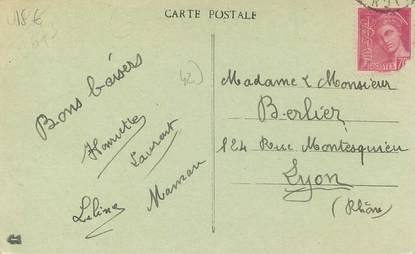 CARTE POSTALE
18 €
42)
Bons baisers
Laurent
Liline Maman
Madame & Monsieur
Berlier
124 Rue Montesquieu
Lyon
(Rhône)